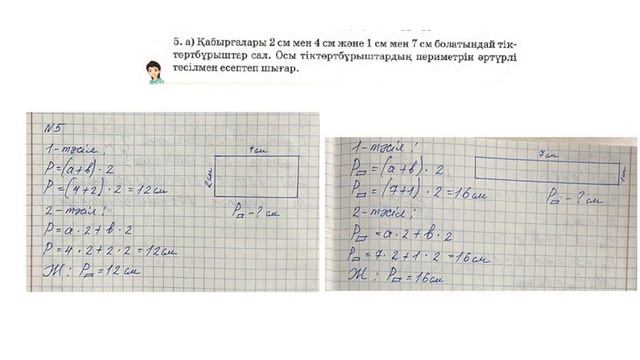 5. а) Қабырғалары 2 см мен 4 см және 1 см мен 7 см болатындай тік-
төртбұрыштар сал. Осы тіктөртбұрыштардың периметрін әртүрлі
тәсілмен есептеп шығар.
№5
1-тәсіл:
P=(a+b)·2
P=(4+2)·2=12см
2-тәсіл:
P=a·2+b·2
P=4·2+2·2=12см
Ж: P▭=12см
4см
2см
P▭-?см
1-тәсіл:
P▭=(a+b)·2
P▭=(7+1)·2=16см
2-тәсіл:
P▭=a·2+b·2
P▭=7·2+1·2=16см
Ж: P▭=16см
7см
1см
P▭-?см